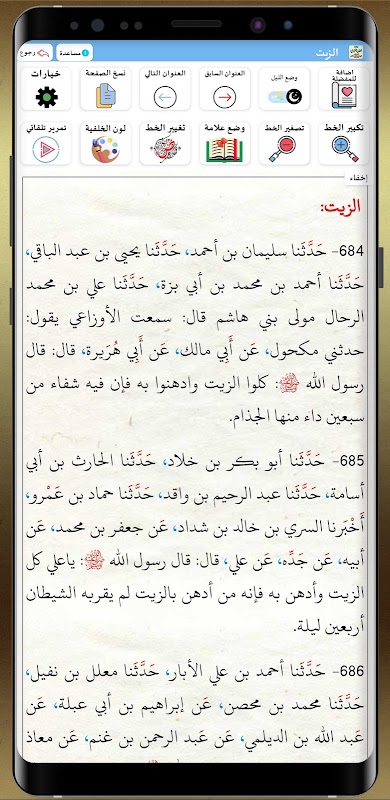 رجوع
مساعدة
الزيت
اضافة للمفضلة
وضع الليل
العنوان السابق
العنوان التالي
نسخ الصفحة
خيارات
تكبير الخط
تصغير الخط
وضع علامة
تغيير الخط
لون الخلفية
تمرير تلقائي
إخفاء
الزيت:
684- حَدَّثَنا سليمان بن أحمد، حَدَّثَنا يحيى بن عبد الباقي،
حَدَّثَنا أحمد بن محمد بن أبي بزة، حَدَّثَنا علي بن محمد
الرحال مولى بني هاشم قال: سمعت الأوزاعي يقول:
حدثني مكحول، عَن أَبِي مالك، عَن أَبِي هُرَيرة، قال: قال
رسول الله ﷺ: كلوا الزيت وادهنوا به فإن فيه شفاء من
سبعين داء منها الجذام.
685- حَدَّثَنا أبو بكر بن خلاد، حَدَّثَنا الحارث بن أبي
أسامة، حَدَّثَنا عبد الرحيم بن واقد، حَدَّثَنا حماد بن عَمْرو،
أَخْبَرنا السري بن خالد بن شداد، عَن جعفر بن محمد، عَن
أبيه، عَن جَدِّه، عَن علي، قال: قال رسول الله ﷺ: ياعلي كل
الزيت وأدهن به فإنه من أدهن بالزيت لم يقربه الشيطان
أربعين ليلة.
686- حَدَّثَنا أحمد بن علي الأبار، حَدَّثَنا معلل بن نفيل،
حَدَّثَنا محمد بن محصن، عَن إبراهيم بن أبي عبلة، عَن
عَبد الله بن الديلمي، عَن عَبد الرحمن بن غنم، عَن معاذ